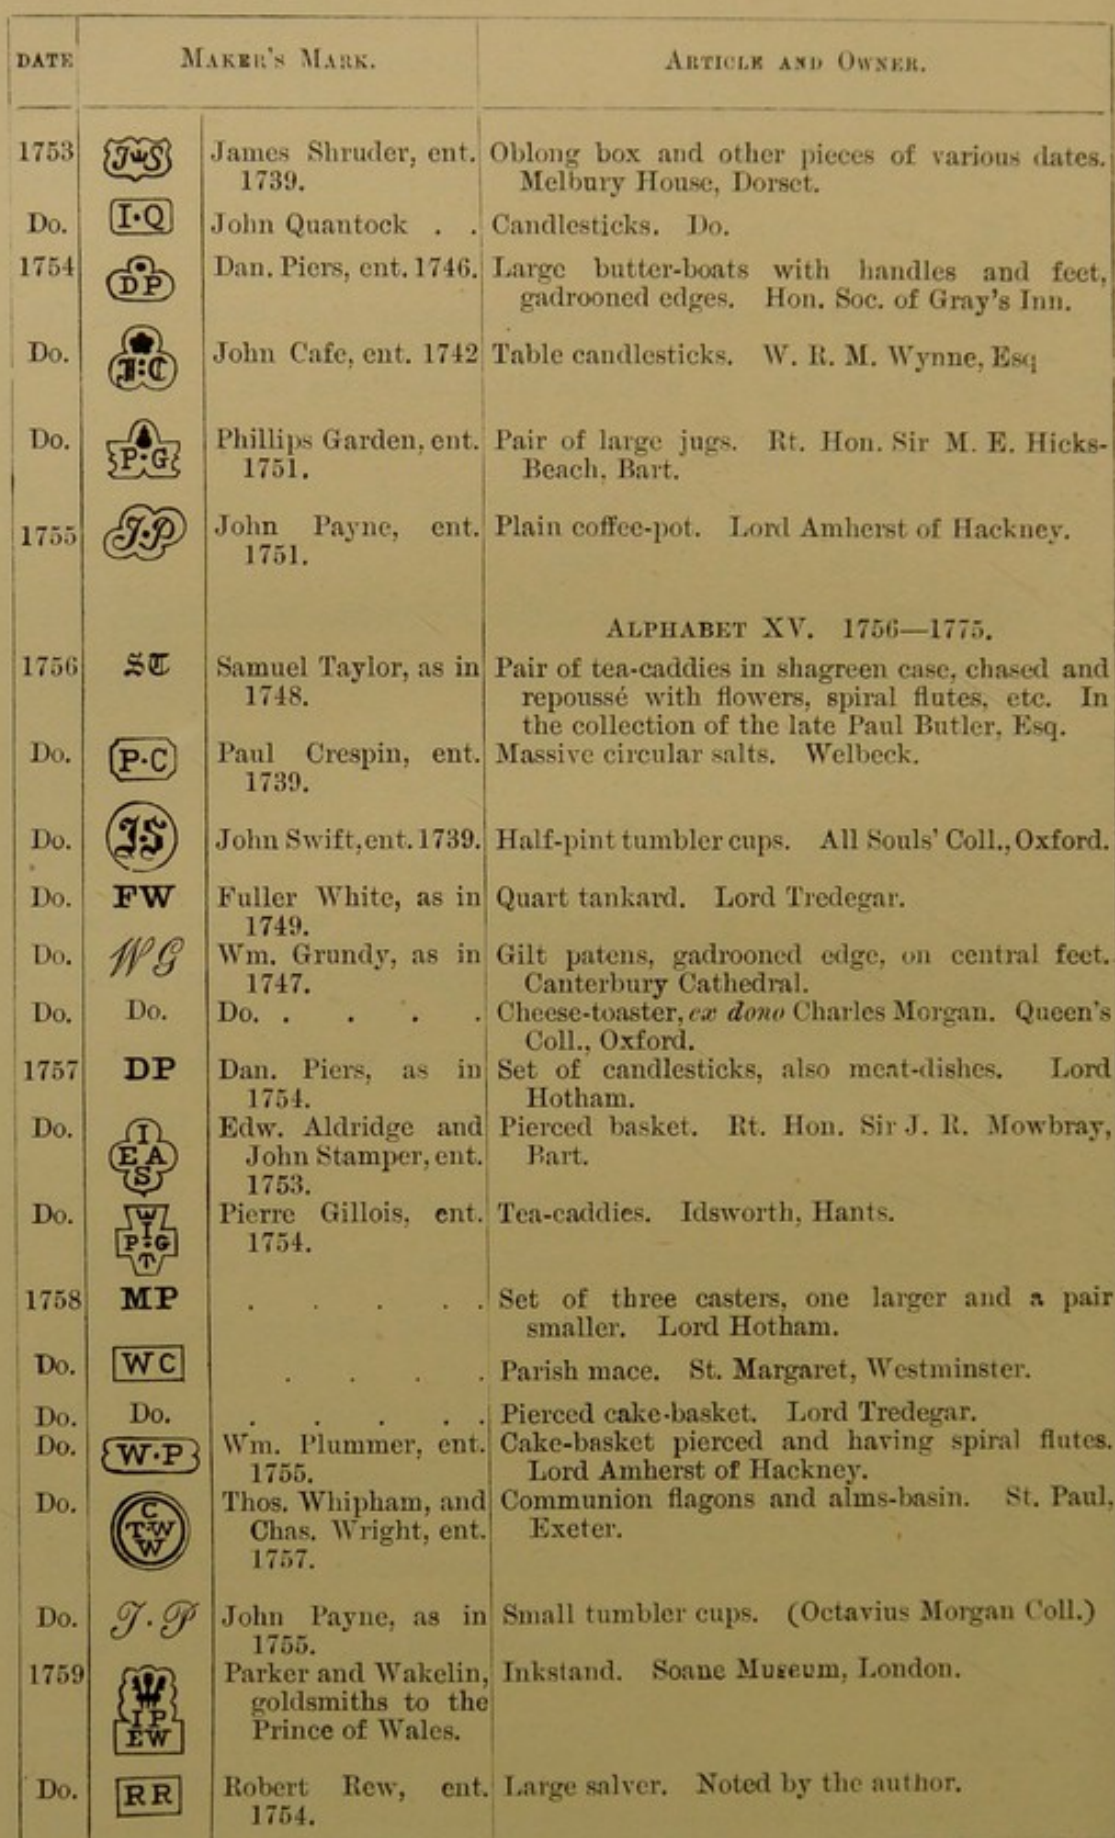 DATE MAKER'S MARK. ARTICLE AND OWNER.
1753 J S James Shruder, ent. Oblong box and other pieces of various dates.
1739. Melbury House, Dorset.
Do. I·Q John Quantock . . Candlesticks. Do.
1754 DP Dan. Piers, ent. 1746. Large butter-boats with handles and feet,
gadrooned edges. Hon. Soc. of Gray's Inn.
Do. I:C John Cafe, ent. 1742 Table candlesticks. W. R. M. Wynne, Esq
Do. P·G Phillips Garden, ent. Pair of large jugs. Rt. Hon. Sir M. E. Hicks-
1751. Beach, Bart.
1755 J·P John Payne, ent. Plain coffee-pot. Lord Amherst of Hackney.
1751.
ALPHABET XV. 1756—1775.
1756 ST Samuel Taylor, as in Pair of tea-caddies in shagreen case, chased and
1748. repoussé with flowers, spiral flutes, etc. In
the collection of the late Paul Butler, Esq.
Do. P·C Paul Crespin, ent. Massive circular salts. Welbeck.
1739.
Do. JS John Swift, ent. 1739. Half-pint tumbler cups. All Souls' Coll., Oxford.
Do. FW Fuller White, as in Quart tankard. Lord Tredegar.
1749.
Do. WG Wm. Grundy, as in Gilt patens, gadrooned edge, on central feet.
1747. Canterbury Cathedral.
Do. Do. Do. . . . . Cheese-toaster, ex dono Charles Morgan. Queen's
Coll., Oxford.
1757 DP Dan. Piers, as in Set of candlesticks, also meat-dishes. Lord
1754. Hotham.
Do. I EA S Edw. Aldridge and Pierced basket. Rt. Hon. Sir J. R. Mowbray,
John Stamper, ent. Bart.
1753.
Do. W I P G T Pierre Gillois, ent. Tea-caddies. Idsworth, Hants.
1754.
1758 MP . . . . . Set of three casters, one larger and a pair
smaller. Lord Hotham.
Do. WC . . . . Parish mace. St. Margaret, Westminster.
Do. Do. . . . . . Pierced cake-basket. Lord Tredegar.
Do. W·P Wm. Plummer, ent. Cake-basket pierced and having spiral flutes.
1755. Lord Amherst of Hackney.
Do. C T·W W Thos. Whipham, and Communion flagons and alms-basin. St. Paul,
Chas. Wright, ent. Exeter.
1757.
Do. J·P John Payne, as in Small tumbler cups. (Octavius Morgan Coll.)
1755.
1759 IP EW Parker and Wakelin, Inkstand. Soane Museum, London.
goldsmiths to the
Prince of Wales.
Do. RR Robert Rew, ent. Large salver. Noted by the author.
1754.